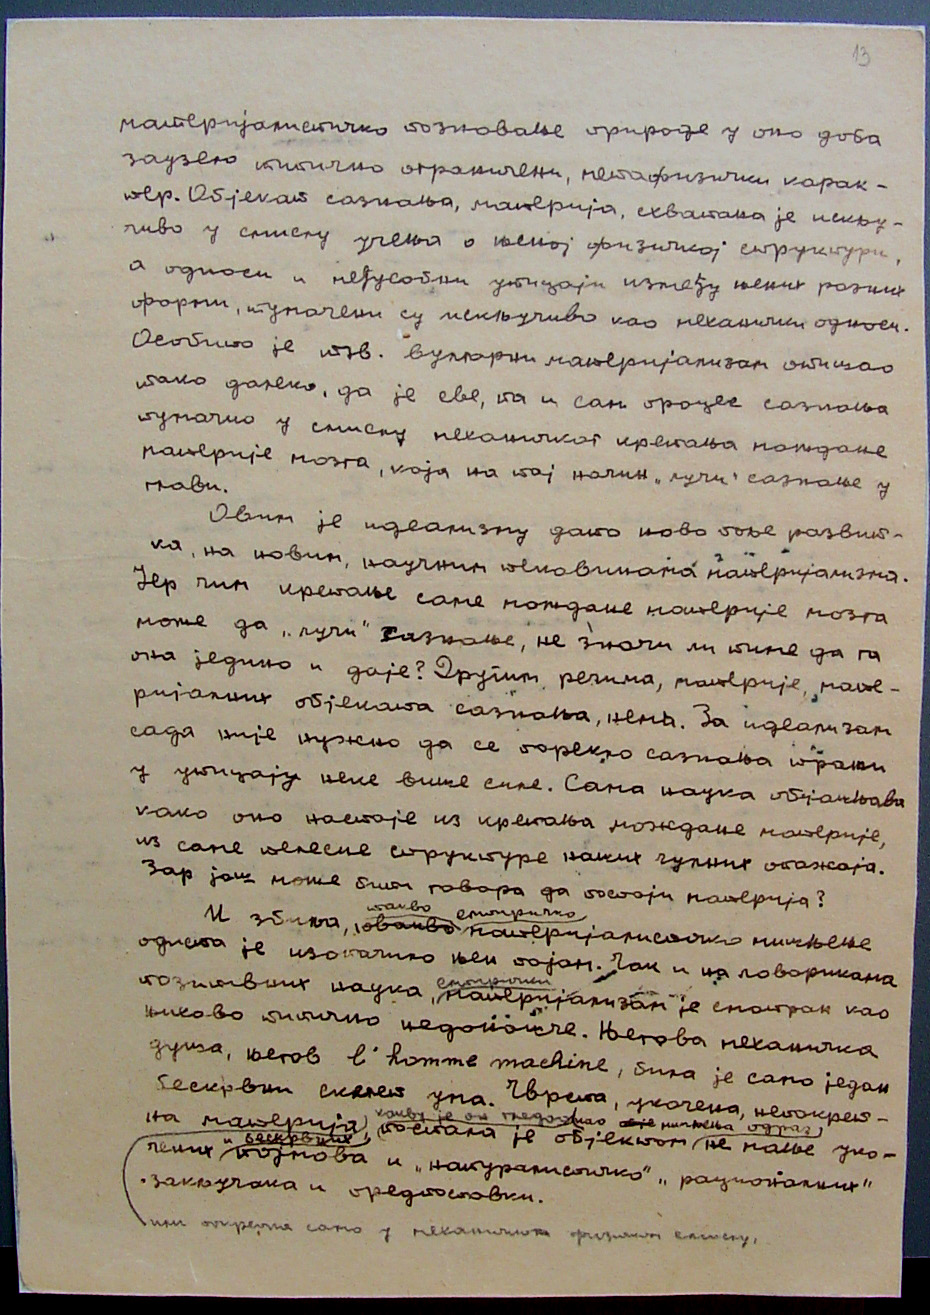 13
материјалистичко познавање природе у оно доба
заузело типично ограничени, метафизички карак-
тер. Објекат сазнања, материја, схватана је искљу-
чиво у смислу учења о њеној физичкој структури,
а односи и међусобни утицаји између њених разних
форми, тумачени су искључиво као механички односи.
Особито је тзв. вулгарни материјализам отишао
тако далеко, да је све, па и сам процес сазнања
тумачио у смислу механичког кретања мождане
материје мозга, која на тај начин „лучи“ сазнање у
глави.
Овим је идеализму дато ново поље развит-
ка, на новим, научним тековинама материјализма.
Јер чим кретање саме мождане материје мозга
може да „лучи“ сазнање, не значи ли тиме да га
она једино и даје? Другим речима, материје, мате-
ријалних објеката сазнања, нема. За идеализам
сада није нужно да се порекло сазнања тражи
у утицају неке више силе. Сама наука објашњава
како оно настаје из кретања мождане материје,
из саме телесне структуре наших чулних опажаја.
Зар још може бити говора да постоји материја?
такво емпиричко
И збиља, овакво материјалистичко мишљење
одиста је изопачило њен појам. Чак и на ловорикама
емпирички
позитивних наука, материјализам је сматран као
њихово типично недоношче. Његова механичка
душа, његов l'homme machine, била је само један
бескрвни скелет ума. Чврста, укочена, непокрет-
какву је он гледао
на материја, постала је објектом не наше уко-
и бескрвних
чених појмова и „натуралистичко“ „рационалних“
закључака и предпоставки.
или покретна само у механичком физичком смислу,